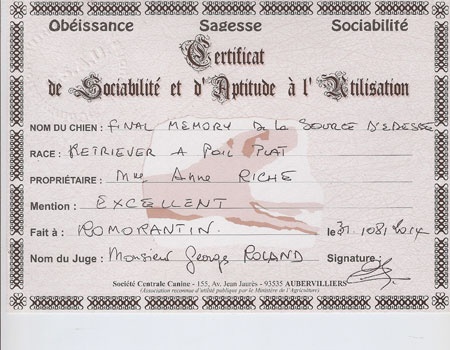 Obéissance Sagesse Sociabilité
Certificat
de Sociabilité et d'Aptitude à l'Utilisation
NOM DU CHIEN : FINAL MEMORY De la SOURCE D'EDESSE
RACE : RETRIEVER A POIL PLAT
PROPRIÉTAIRE : Mme Anne RICHE
Mention : EXCELLENT
Fait à : ROMORANTIN. le 31.08.2014
Nom du Juge : Monsieur George ROLAND Signature :
Société Centrale Canine - 155, Av. Jean Jaurès - 93535 AUBERVILLIERS
(Association reconnue d'utilité publique par le Ministère de l'Agriculture)